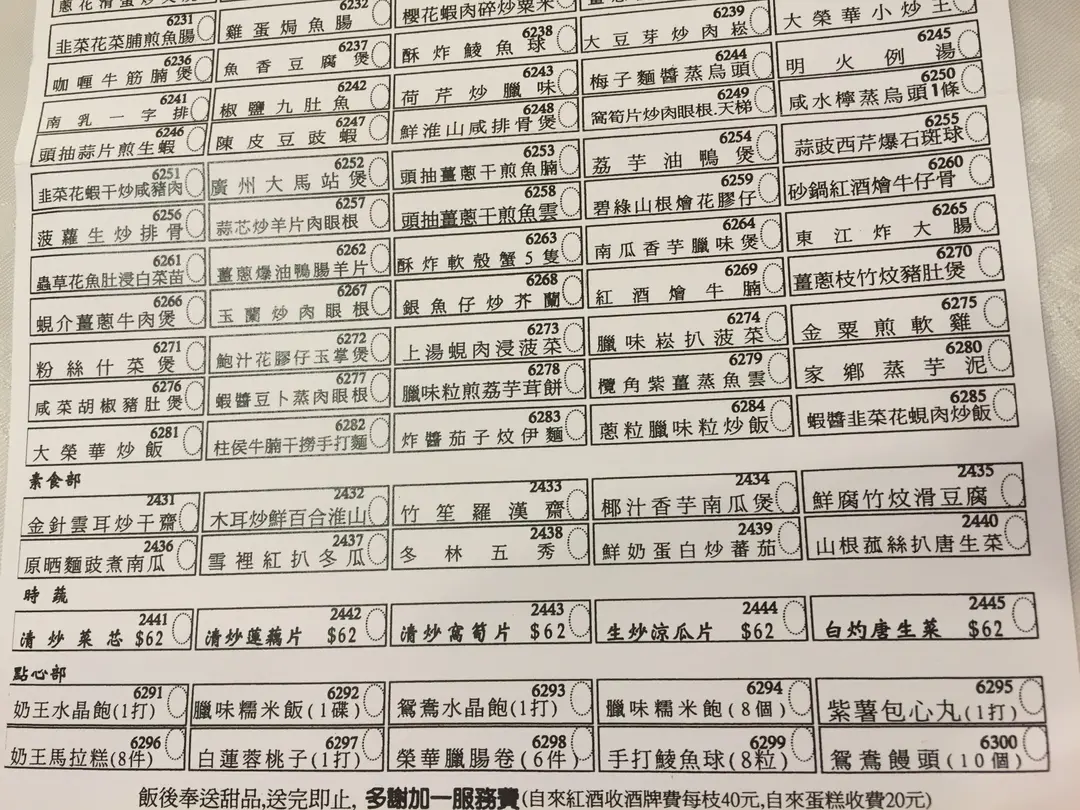 櫻花蝦肉碎炒粟米
6231 韭菜花菜脯煎魚腸
6232 雞蛋焗魚腸
6236 咖喱牛筋腩煲
6237 魚香豆腐煲
6238 酥炸鯪魚球
6239 大豆芽炒肉崧
大榮華小炒王
6241 南乳一字排
6242 椒鹽九肚魚
6243 荷芹炒臘味
6244 梅子麵醬蒸烏頭
6245 明火例湯
6246 頭抽蒜片煎生蝦
6247 陳皮豆豉蝦
6248 鮮淮山咸排骨煲
6249 窩筍片炒肉眼根.天梯
6250 咸水檸蒸烏頭1條
6251 韭菜花蝦干炒咸豬肉
6252 廣州大馬站煲
6253 頭抽薑蔥干煎魚腩
6254 荔芋油鴨煲
6255 蒜豉西芹爆石斑球
6256 菠蘿生炒排骨
6257 蒜芯炒羊片肉眼根
6258 頭抽薑蔥干煎魚雲
6259 碧綠山根燴花膠仔
6260 砂鍋紅酒燴牛仔骨
6261 蟲草花魚肚浸白菜苗
6262 薑蔥爆油鴨腸羊片
6263 酥炸軟殼蟹5隻
6264 南瓜香芋臘味煲
6265 東江炸大腸
6266 蜆介薑蔥牛肉煲
6267 玉蘭炒肉眼根
6268 銀魚仔炒芥蘭
6269 紅酒燴牛腩
6270 薑蔥枝竹炆豬肚煲
6271 粉絲什菜煲
6272 鮑汁花膠仔玉掌煲
6273 上湯蜆肉浸菠菜
6274 臘味崧扒菠菜
6275 金粟煎軟雞
6276 咸菜胡椒豬肚煲
6277 蝦醬豆卜蒸肉眼根
6278 臘味粒煎荔芋茸餅
6279 欖角紫薑蒸魚雲
6280 家鄉蒸芋泥
6281 大榮華炒飯
6282 柱侯牛腩干撈手打麵
6283 炸醬茄子炆伊麵
6284 蔥粒臘味粒炒飯
6285 蝦醬韭菜花蜆肉炒飯
素食部
2431 金針雲耳炒干齋
2432 木耳炒鮮百合淮山
2433 竹笙羅漢齋
2434 椰汁香芋南瓜煲
2435 鮮腐竹炆滑豆腐
2436 原晒麵豉煮南瓜
2437 雪裡紅扒冬瓜
2438 冬林五秀
2439 鮮奶蛋白炒蕃茄
2440 山根菰絲扒唐生菜
時蔬
2441 清炒菜芯 $62
2442 清炒蓮藕片 $62
2443 清炒窩筍片 $62
2444 生炒涼瓜片 $62
2445 白灼唐生菜 $62
點心部
6291 奶王水晶飽(1打)
6292 臘味糯米飯(1碟)
6293 鴛鴦水晶飽(1打)
6294 臘味糯米飽(8個)
6295 紫薯包心丸(1打)
6296 奶王馬拉糕(8件)
6297 白蓮蓉桃子(1打)
6298 榮華臘腸卷(6件)
6299 手打鯪魚球(8粒)
6300 鴛鴦饅頭(10個)
飯後奉送甜品,送完即止, 多謝加一服務費(自來紅酒收酒牌費每枝40元,自來蛋糕收費20元)